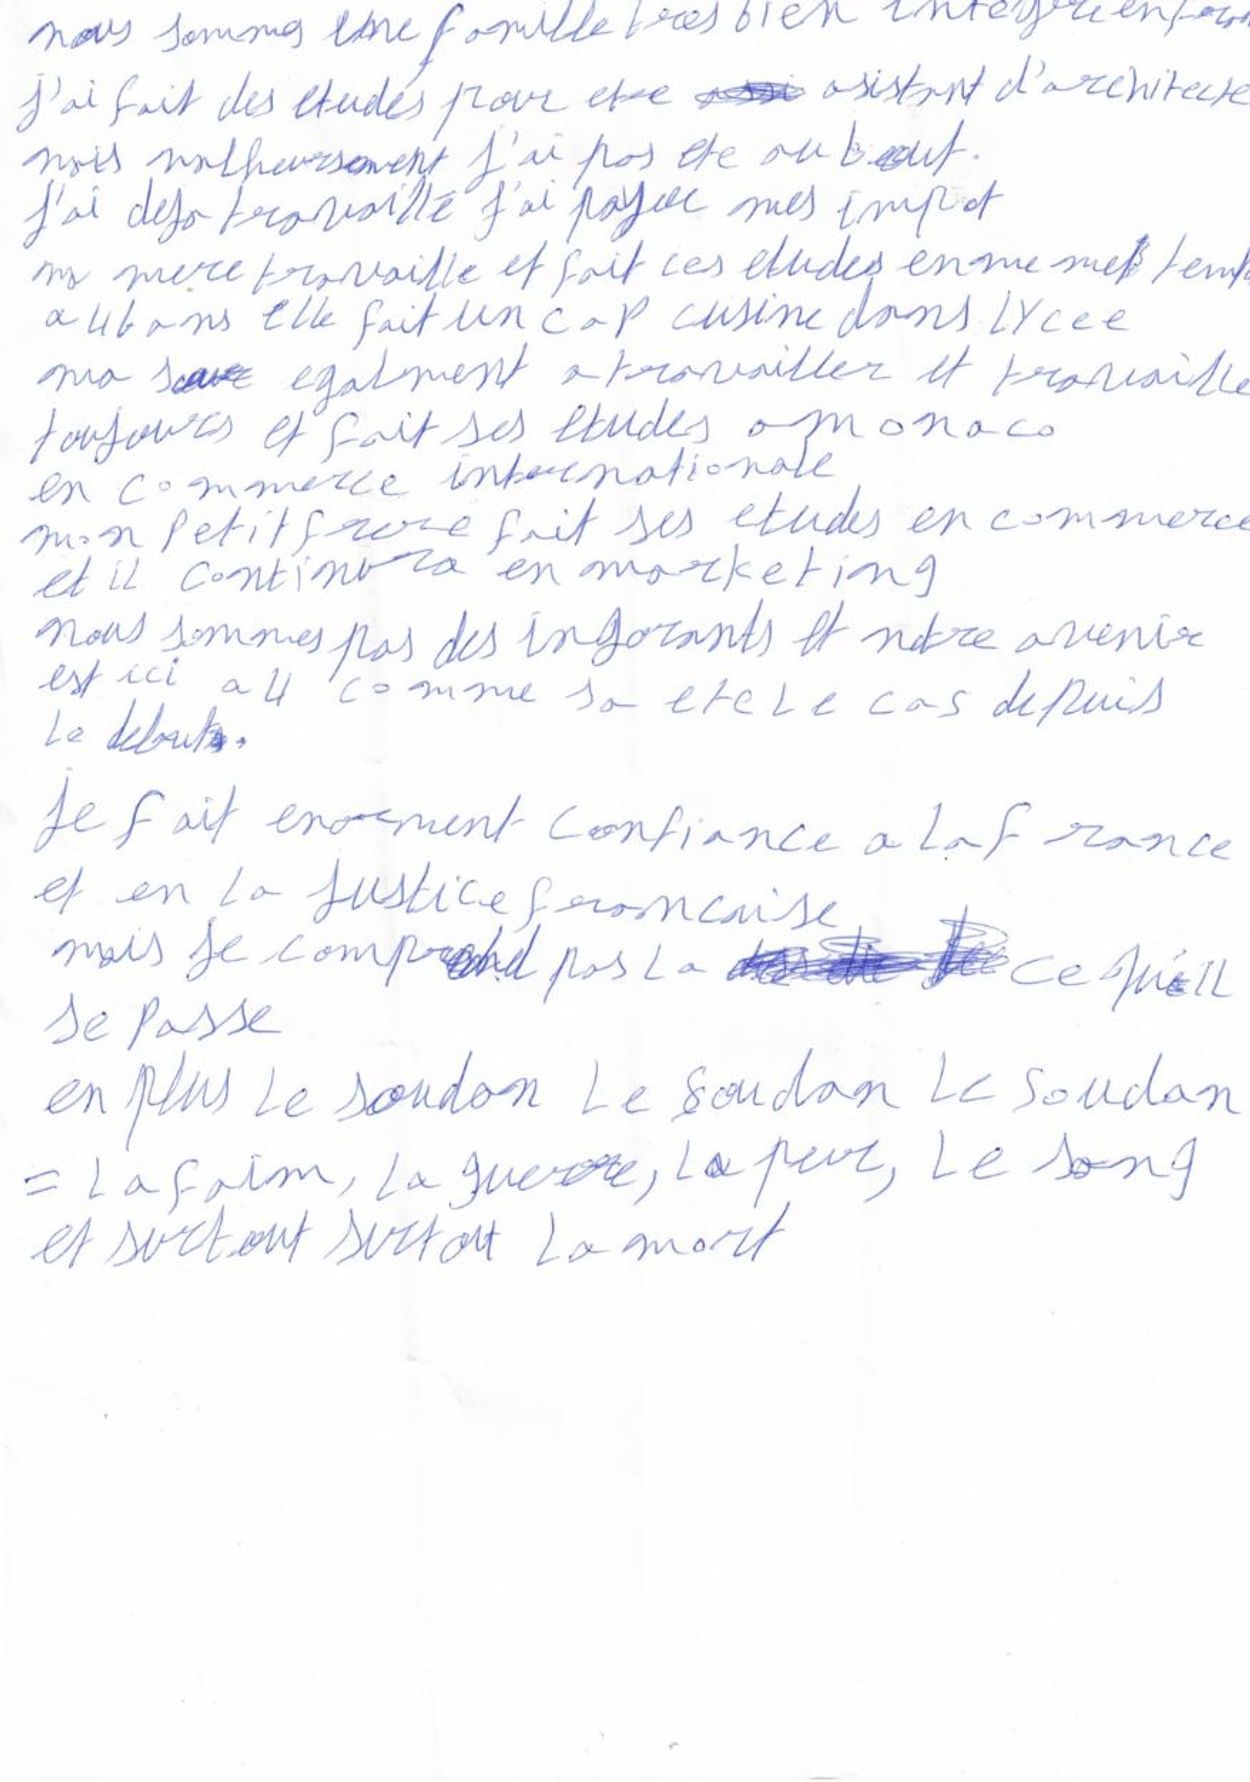 nous sommes une famille tres bien integre en fran
j'ai fait des etudes pour etre asistant d'architecte
mais malheursement j'ai pas ete au bout.
j'ai deja travaillé j'ai payer mes impot
ma mere travaille et fait ces etudes en meme temps
a 46 ans elle fait un cap cusine dans lycee
ma sœur egalment a travailler et travaille
toujours et fait ses etudes a monaco
en commerce internationale
mon petit frere fait ses etudes en commerce
et il continura en marketing
nous sommes pas des ingorants et notre avenir
est ici a 4 comme sa ete le cas depuis
le debut.
je fait enorment confiance a la france
et en la justice francaise
mais je comprend pas la ce qu'il
se passe
en plus le soudan le soudan le soudan
= la faim, la guerre, la peur, le sang
et surtout surtout la mort